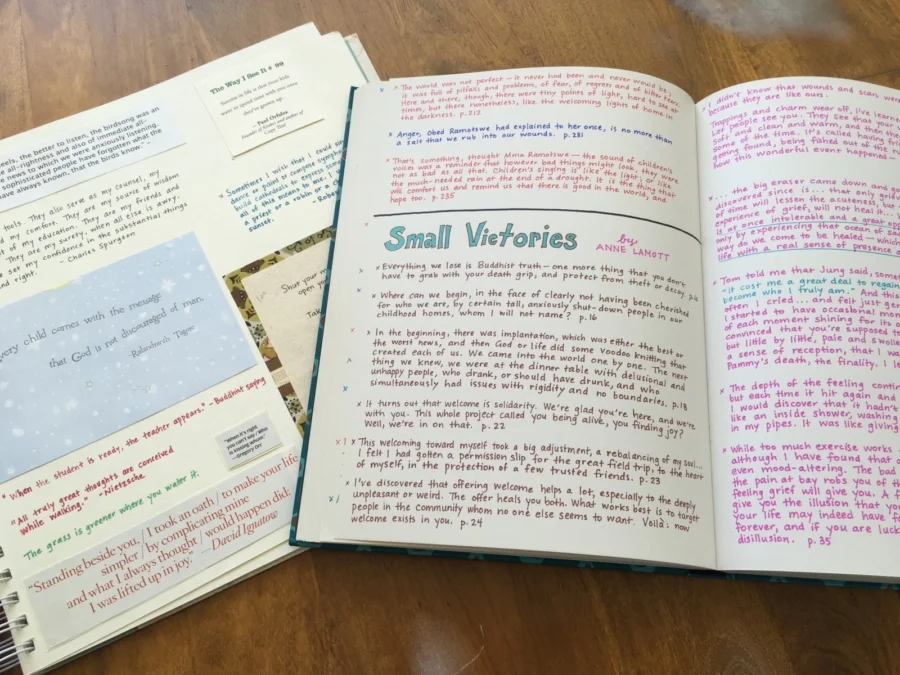 eels, the better to listen, the birdsong was
e all-rightness and also of immediate all-
e news to which we were anxiously listening.
sophisticated people have forgotten what the
ave always known, that the birds know."
tools. They also serve as my counsel, my
d my comfort. They are my source of wisdom
of my education. They are my friends and
They are my surety, when all else is awry.
set my confidence in the substantial things
nd right. - Charles Spurgeon
The Way I See It # 99
Success in life is that your kids
want to spend time with you once
they're grown up.
- Paul Orfalea
Founder of Kinko's and author of
Copy This!
Sometimes I wish that I could
Shut your
open yo
very child comes with the message
that God is not discouraged of man.
-Rabindranath Tagore
"When the student is ready, the teacher appears." - Buddhist saying
"All truly great thoughts are conceived
while walking." -Nietzsche
The grass is greener where you water it.
"When it's right
you can't say / who
is kissing whom."
-Gregory Orr
"Standing beside you, / I took an oath / to make your life
simpler / by complicating mine
and what I always thought / would happen did.
I was lifted up in joy." —David Ignatow
x The world was not perfect - it never had been and never would be;
it was full of pitfalls and problems, of fear, of regrets and of bitter tears.
Here and there, though, there were tiny points of light, hard to see at
times, but there nonetheless, like the welcoming lights of home in
the darkness. p. 212
x Anger, Obed Ramotswe had explained to her once, is no more than
a salt that we rub into our wounds. p. 231
x That's something, thought Mma Ramotswe - the sound of children's
voices was a reminder that however bad things might look, they were
not as bad as all that. Children's singing is like the light, or like
the much-needed rain at the end of a drought. It is the thing that
will comfort us and remind us that there is good in the world, and
hope too. p. 235
Small Victories by
ANNE LAMOTT
x Everything we lose is Buddhist truth - one more thing that you don't
have to grab with your death grip, and protect from theft or decay.
x Where can we begin, in the face of clearly not having been cherished
for who we are, by certain tall, anxiously shut-down people in our
childhood homes, whom I will not name? p. 16
x In the beginning, there was implantation, which was either the best or
the worst news, and then God or life did some Voodoo knitting that
created each of us. We came into the world one by one. The next
thing we knew, we were at the dinner table with delusional and
unhappy people, who drank, or should have drunk, and who
simultaneously had issues with rigidity and no boundaries. p. 18
x It turns out that welcome is solidarity. We're glad you're here, and we're
with you. This whole project called you being alive, you finding joy?
Well, we're in on that. p. 22
x This welcoming toward myself took a big adjustment, a rebalancing of my soul...
I felt I had gotten a permission slip for the great field trip, to the heart
of myself, in the protection of a few trusted friends. p. 23
x I've discovered that offering welcome helps a lot, especially to the deeply
unpleasant or weird. The offer heals you both. What works best is to target
people in the community whom no one else seems to want. Voilà: now
welcome exists in you. p. 24
x I didn't know that wounds and scars wer
because they are like ours.
Trappings and charm wear off, I've learn
Let people see you. They see
x ... the big eraser came down and
discovered since is... that only
of time will lessen the acuteness, but
experience of grief, will not heal it...
is at once intolerable and a great opp
only by experiencing that ocean of
way do we come to be healed - which
life with a real sense of presence
x Tom told me that Jung said, somet
"it cost me a great deal to regain
become who I truly am." And this
often I cried... and felt just
I started to have occasional mom
of each moment shining for its o
convinced that you're supposed t
but little by little, pale and swolle
a sense of reception, that I wa
Pammy's death, the finality. I le
x The depth of the feeling contin
but each time it hit again and
I would discover that it hadn't
like an inside shower, washing
in my pipes. It was like giving
x While too much exercise works
although I have found that
even mood-altering. The bad
the pain at bay robs you of th
feeling grief will give you. A f
give you the illusion that you
your life may indeed have f
forever, and if you are luck
disillusion. p. 35